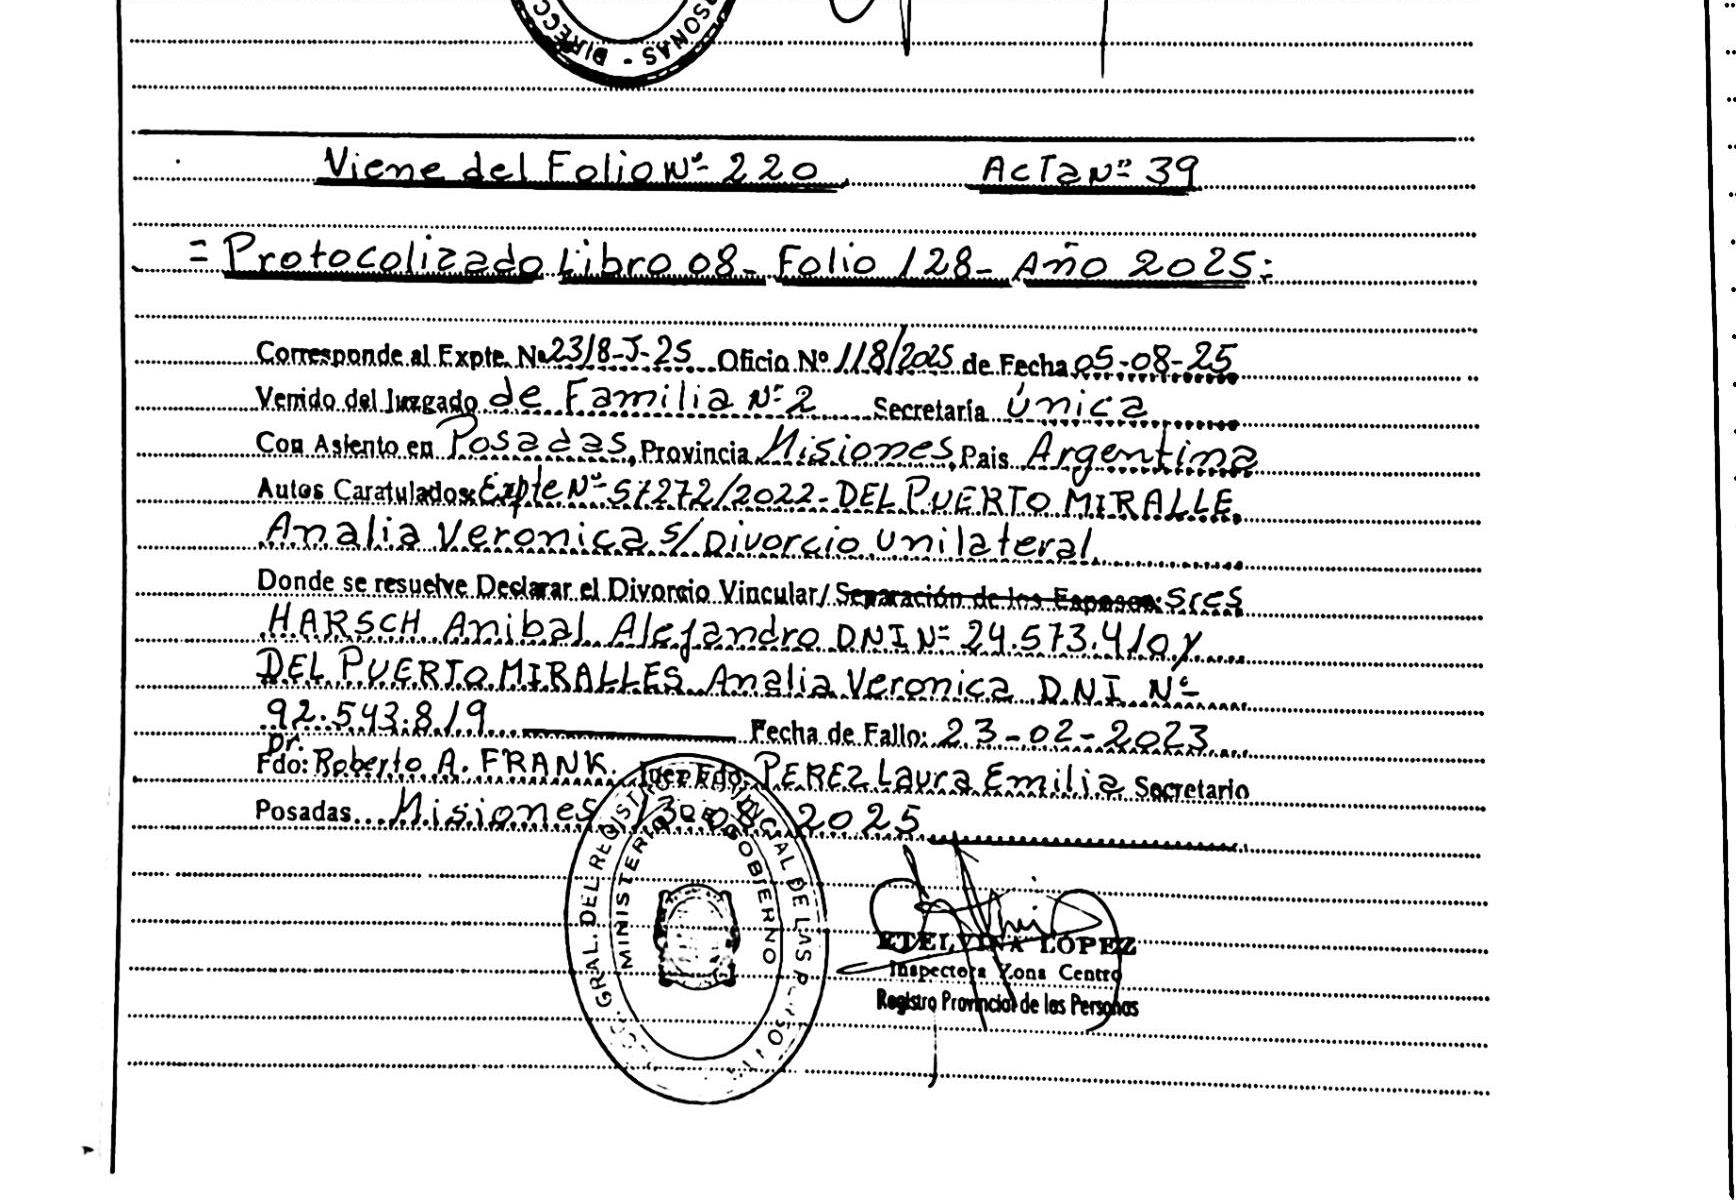 SONAS - DIRECC
Viene del Folio Nº 220 Acta Nº 39
= Protocolizado Libro 08- Folio 128- Año 2025:
Corresponde al Expte. Nº 2318-J-25 Oficio Nº 118/2025 de Fecha 05-08-25
Venido del Juzgado de Familia Nº 2 Secretaría Única
Con Asiento en Posadas, Provincia Misiones, País Argentina
Autos Caratulados: Expte Nº 57272/2022- DEL PUERTO MIRALLE,
Analia Veronica s/Divorcio Unilateral
Donde se resuelve Declarar el Divorcio Vincular/ Separación de los Esposos: Sres
HARSCH Anibal Alejandro DNI Nº 24.573.410 y
DEL PUERTO MIRALLES Analia Veronica D.N.I Nº
92.543.819 Fecha de Fallo: 23-02-2023
Fdo: Dr. Roberto A. FRANK. Juez Fdo: PEREZ Laura Emilia Secretario
Posadas Misiones 13 2025
GRAL. DEL REGISTRO PROVINCIAL DE LAS
MINISTERIO DE GOBIERNO
ETELVINA LOPEZ
Inspectora Zona Centro
Registro Provincial de las Personas